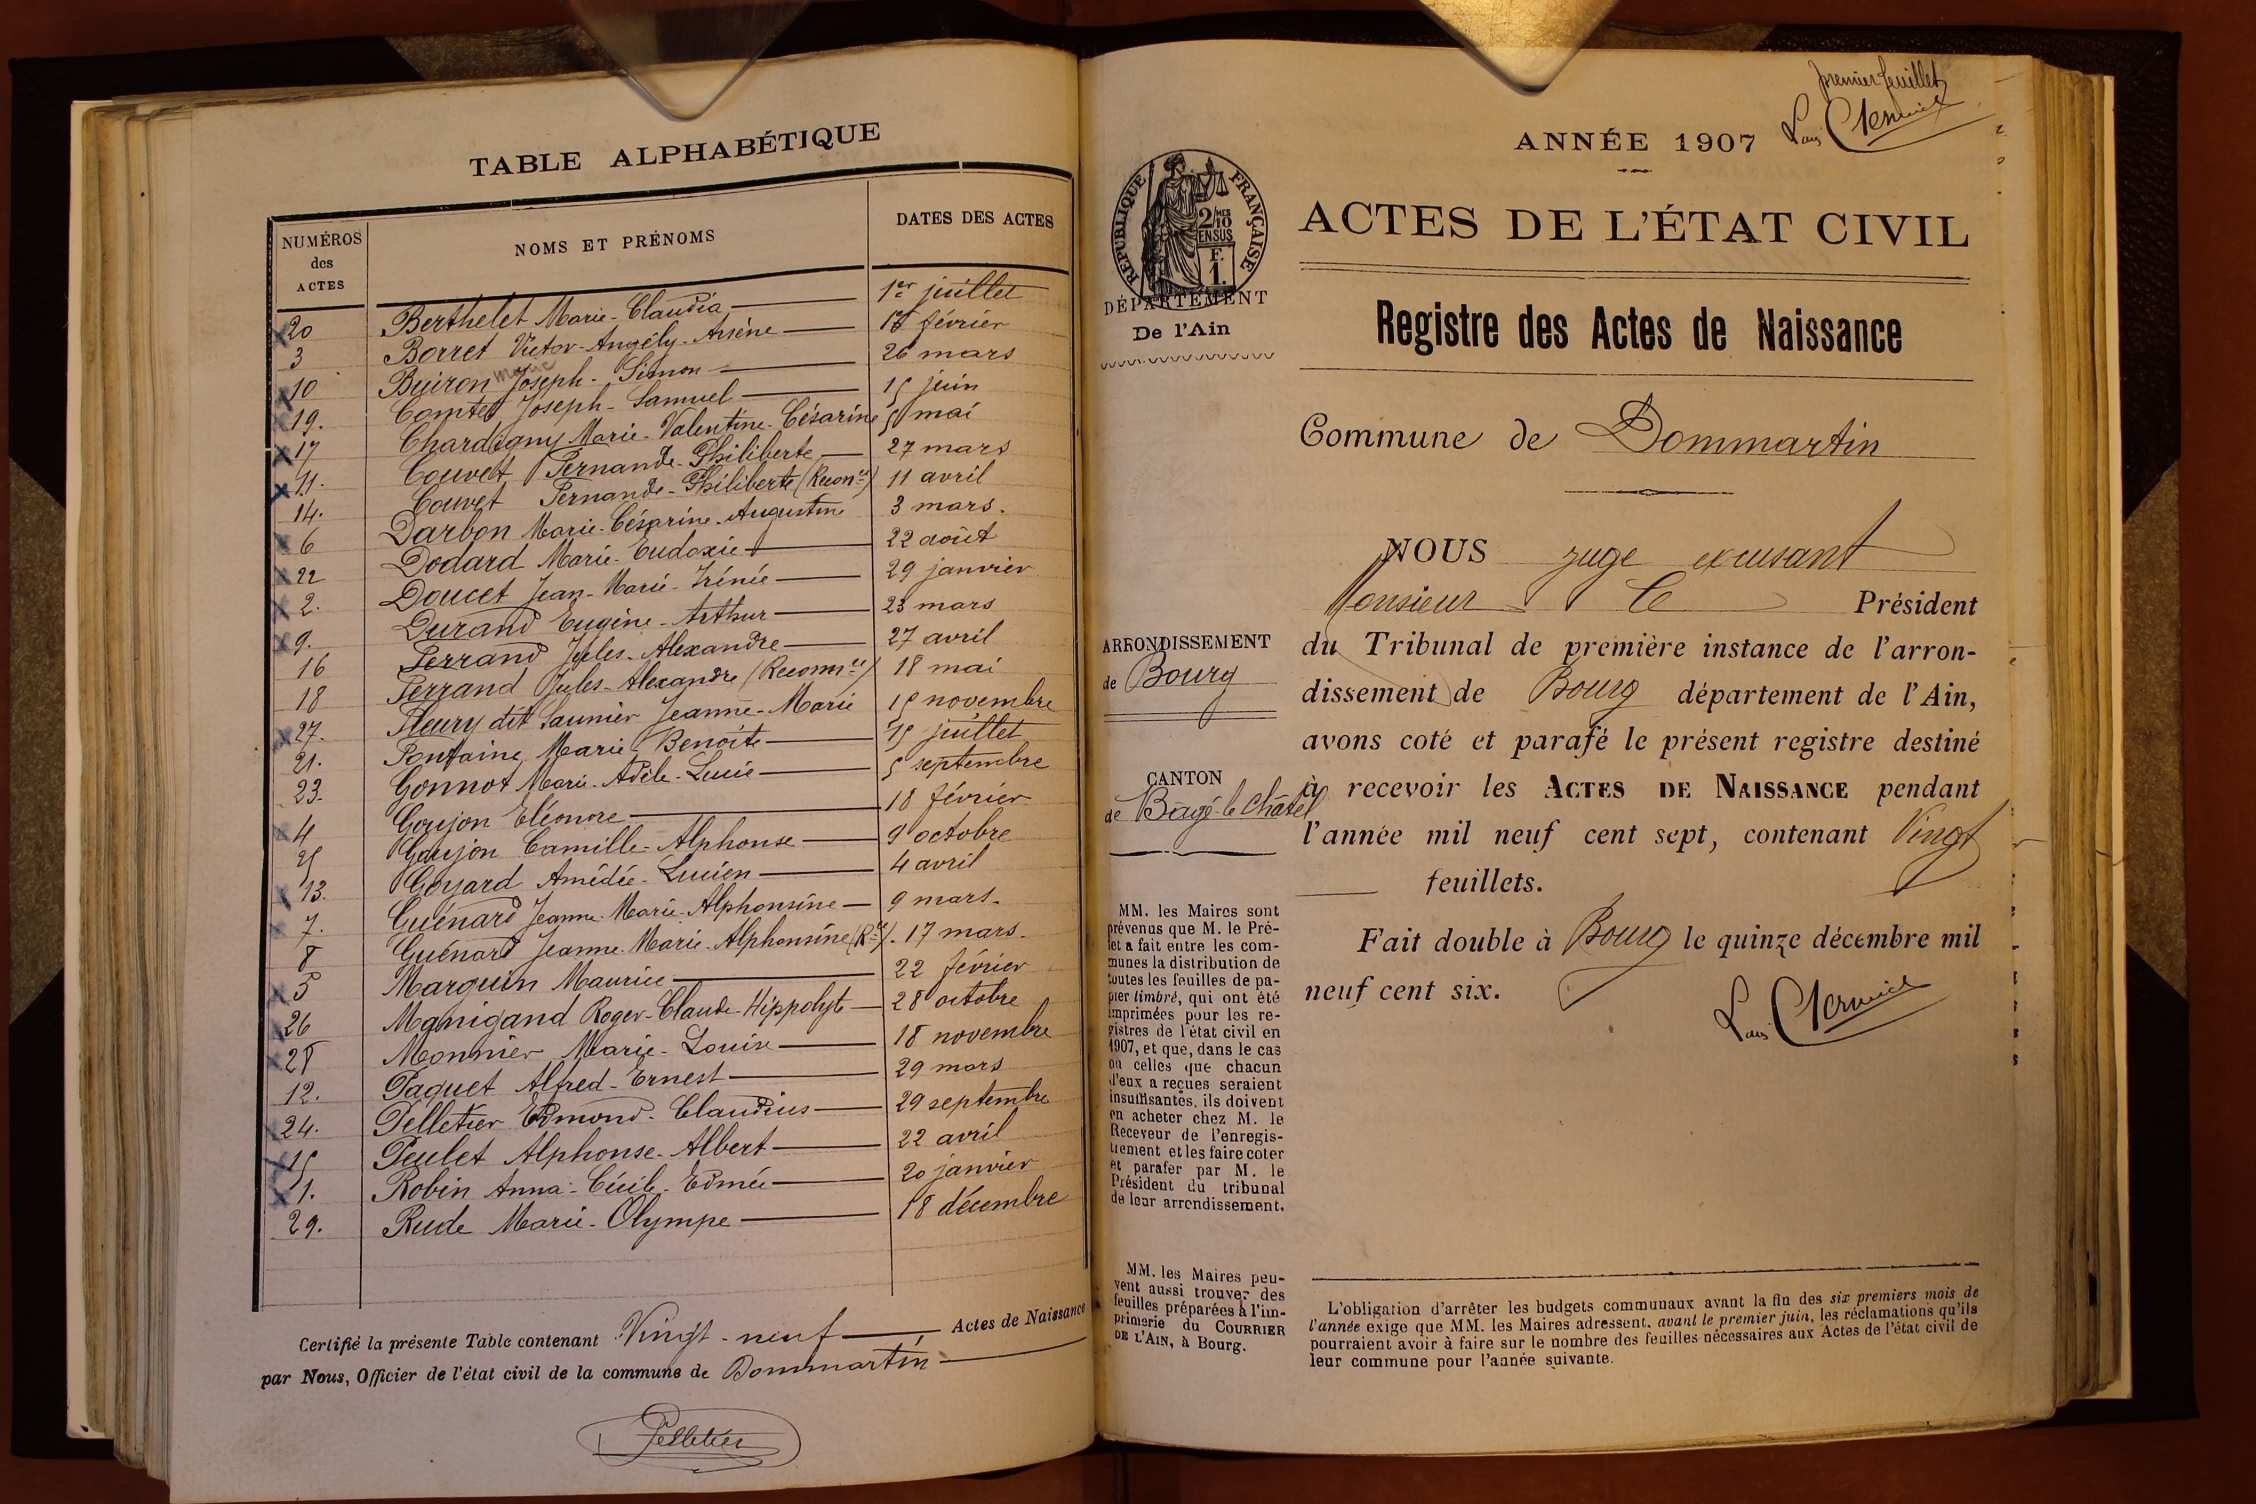 TABLE ALPHABÉTIQUE
NUMÉROS des ACTES NOMS ET PRÉNOMS DATES DES ACTES
20 Berthelet Marie-Claudia 1er juillet
3 Borret Victor-Angély-Arsène 17 février
10 Buiron Marie Joseph-Simon 26 mars
19. Comtet Joseph-Samuel 15 juin
17 Chardigny Marie-Valentine-Césarine 5 mai
11. Couvet Fernande-Philiberte 27 mars
14. Couvet Fernande-Philiberte (Reconce) 11 avril
6 Darbon Marie-Césarine-Augustine 3 mars.
22 Dodard Marie-Eudoxie 22 août
2. Doucet Jean-Marie-Irénée 29 janvier
9. Durand Eugène-Arthur 23 mars
16 Ferrand Jules-Alexandre 27 avril
18 Ferrand Jules-Alexandre (Reconnce) 18 mai
27. Fleury dit Saunier Jeanne-Marie 15 novembre
21. Fontaine Marie-Benoite 15 juillet
23. Gonnot Marie-Adèle-Lucie 5 septembre
4 Goujon Eléonore 18 février
25 Goujon Camille-Alphonse 9 octobre
13. Goyard Amédée-Lucien 4 avril
7. Guénard Jeanne-Marie-Alphonsine 9 mars.
8 Guénard Jeanne-Marie-Alphonsine (Rce). 17 mars.
5 Marguin Maurice 22 février
26 Manigand Roger-Claude-Hippolyte 28 octobre
28 Monnier Marie-Louise 18 novembre
12. Paquet Alfred-Ernest 29 mars
24. Pelletier Edmond-Claudius 29 septembre
15 Peulet Alphonse-Albert 22 avril
1. Robin Anna-Cécile-Edmée 20 janvier
29. Rude Marie-Olympe 18 décembre
Certifié la présente Table contenant Vingt-neuf Actes de Naissance
par Nous, Officier de l'état civil de la commune de Dommartin
Pelletier
premier feuillet
ANNÉE 1907
RÉPUBLIQUE FRANÇAISE
2/10 MES
EN SUS
F.
1.
DÉPARTEMENT
De l'Ain
ACTES DE L'ÉTAT CIVIL
Registre des Actes de Naissance
Commune de Dommartin
NOUS juge excusant
Monsieur le Président
du Tribunal de première instance de l'arron-
dissement de Bourg département de l'Ain,
avons coté et parafé le présent registre destiné
à recevoir les ACTES DE NAISSANCE pendant
l'année mil neuf cent sept, contenant Vingt
feuillets.
Fait double à Bourg le quinze décembre mil
neuf cent six.
ARRONDISSEMENT
de Bourg
CANTON
de Bâgé-le-Châtel
MM. les Maires sont
prévenus que M. le Pré-
fet a fait entre les com-
munes la distribution de
toutes les feuilles de pa-
pier timbré, qui ont été
imprimées pour les re-
gistres de l'état civil en
1907, et que, dans le cas
où celles que chacun
d'eux a reçues seraient
insuffisantes, ils doivent
en acheter chez M. le
Receveur de l'enregis-
trement et les faire coter
et parafer par M. le
Président du tribunal
de leur arrondissement.
MM. les Maires peu-
vent aussi trouver des
feuilles préparées à l'im-
primerie du COURRIER
DE L'AIN, à Bourg.
L'obligation d'arrêter les budgets communaux avant la fin des six premiers mois de
l'année exige que MM. les Maires adressent, avant le premier juin, les réclamations qu'ils
pourraient avoir à faire sur le nombre des feuilles nécessaires aux Actes de l'état civil de
leur commune pour l'année suivante.